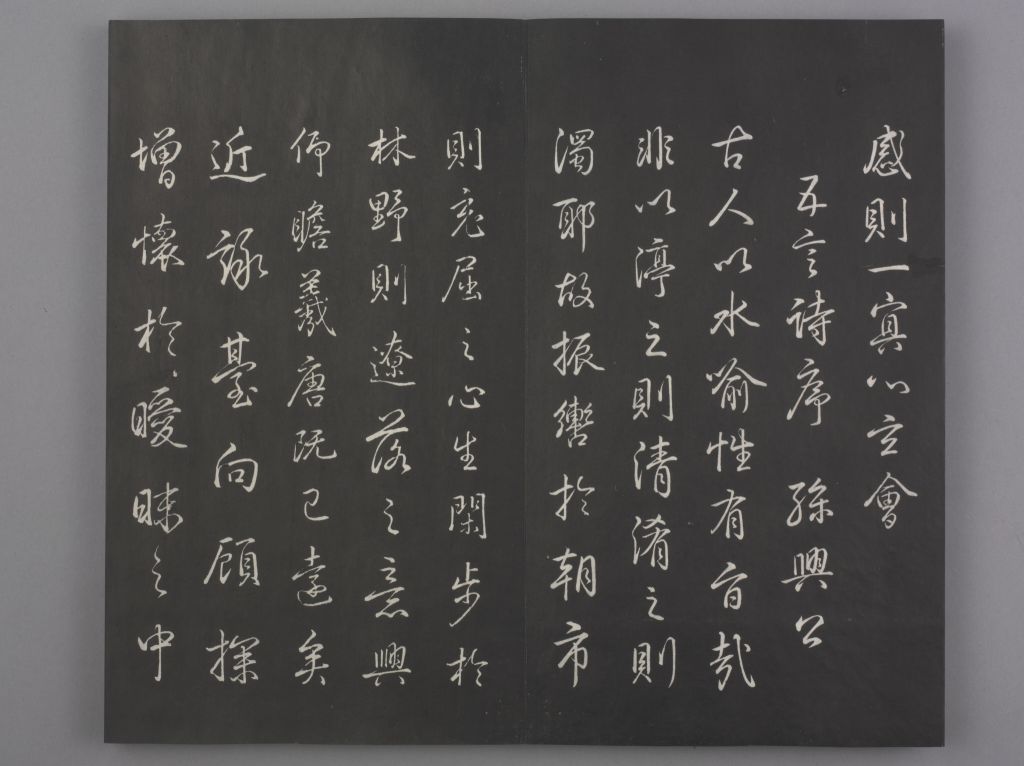 感則一冥心玄會
五言詩序 孫興公
古人以水喻性有旨哉
非以渟之則清淆之則
濁耶故振轡於朝市
則充屈之心生閑步於
林野則遼落之意興
仰瞻羲唐既已遠矣
近詠臺向顧探
增懷於曖昧之中